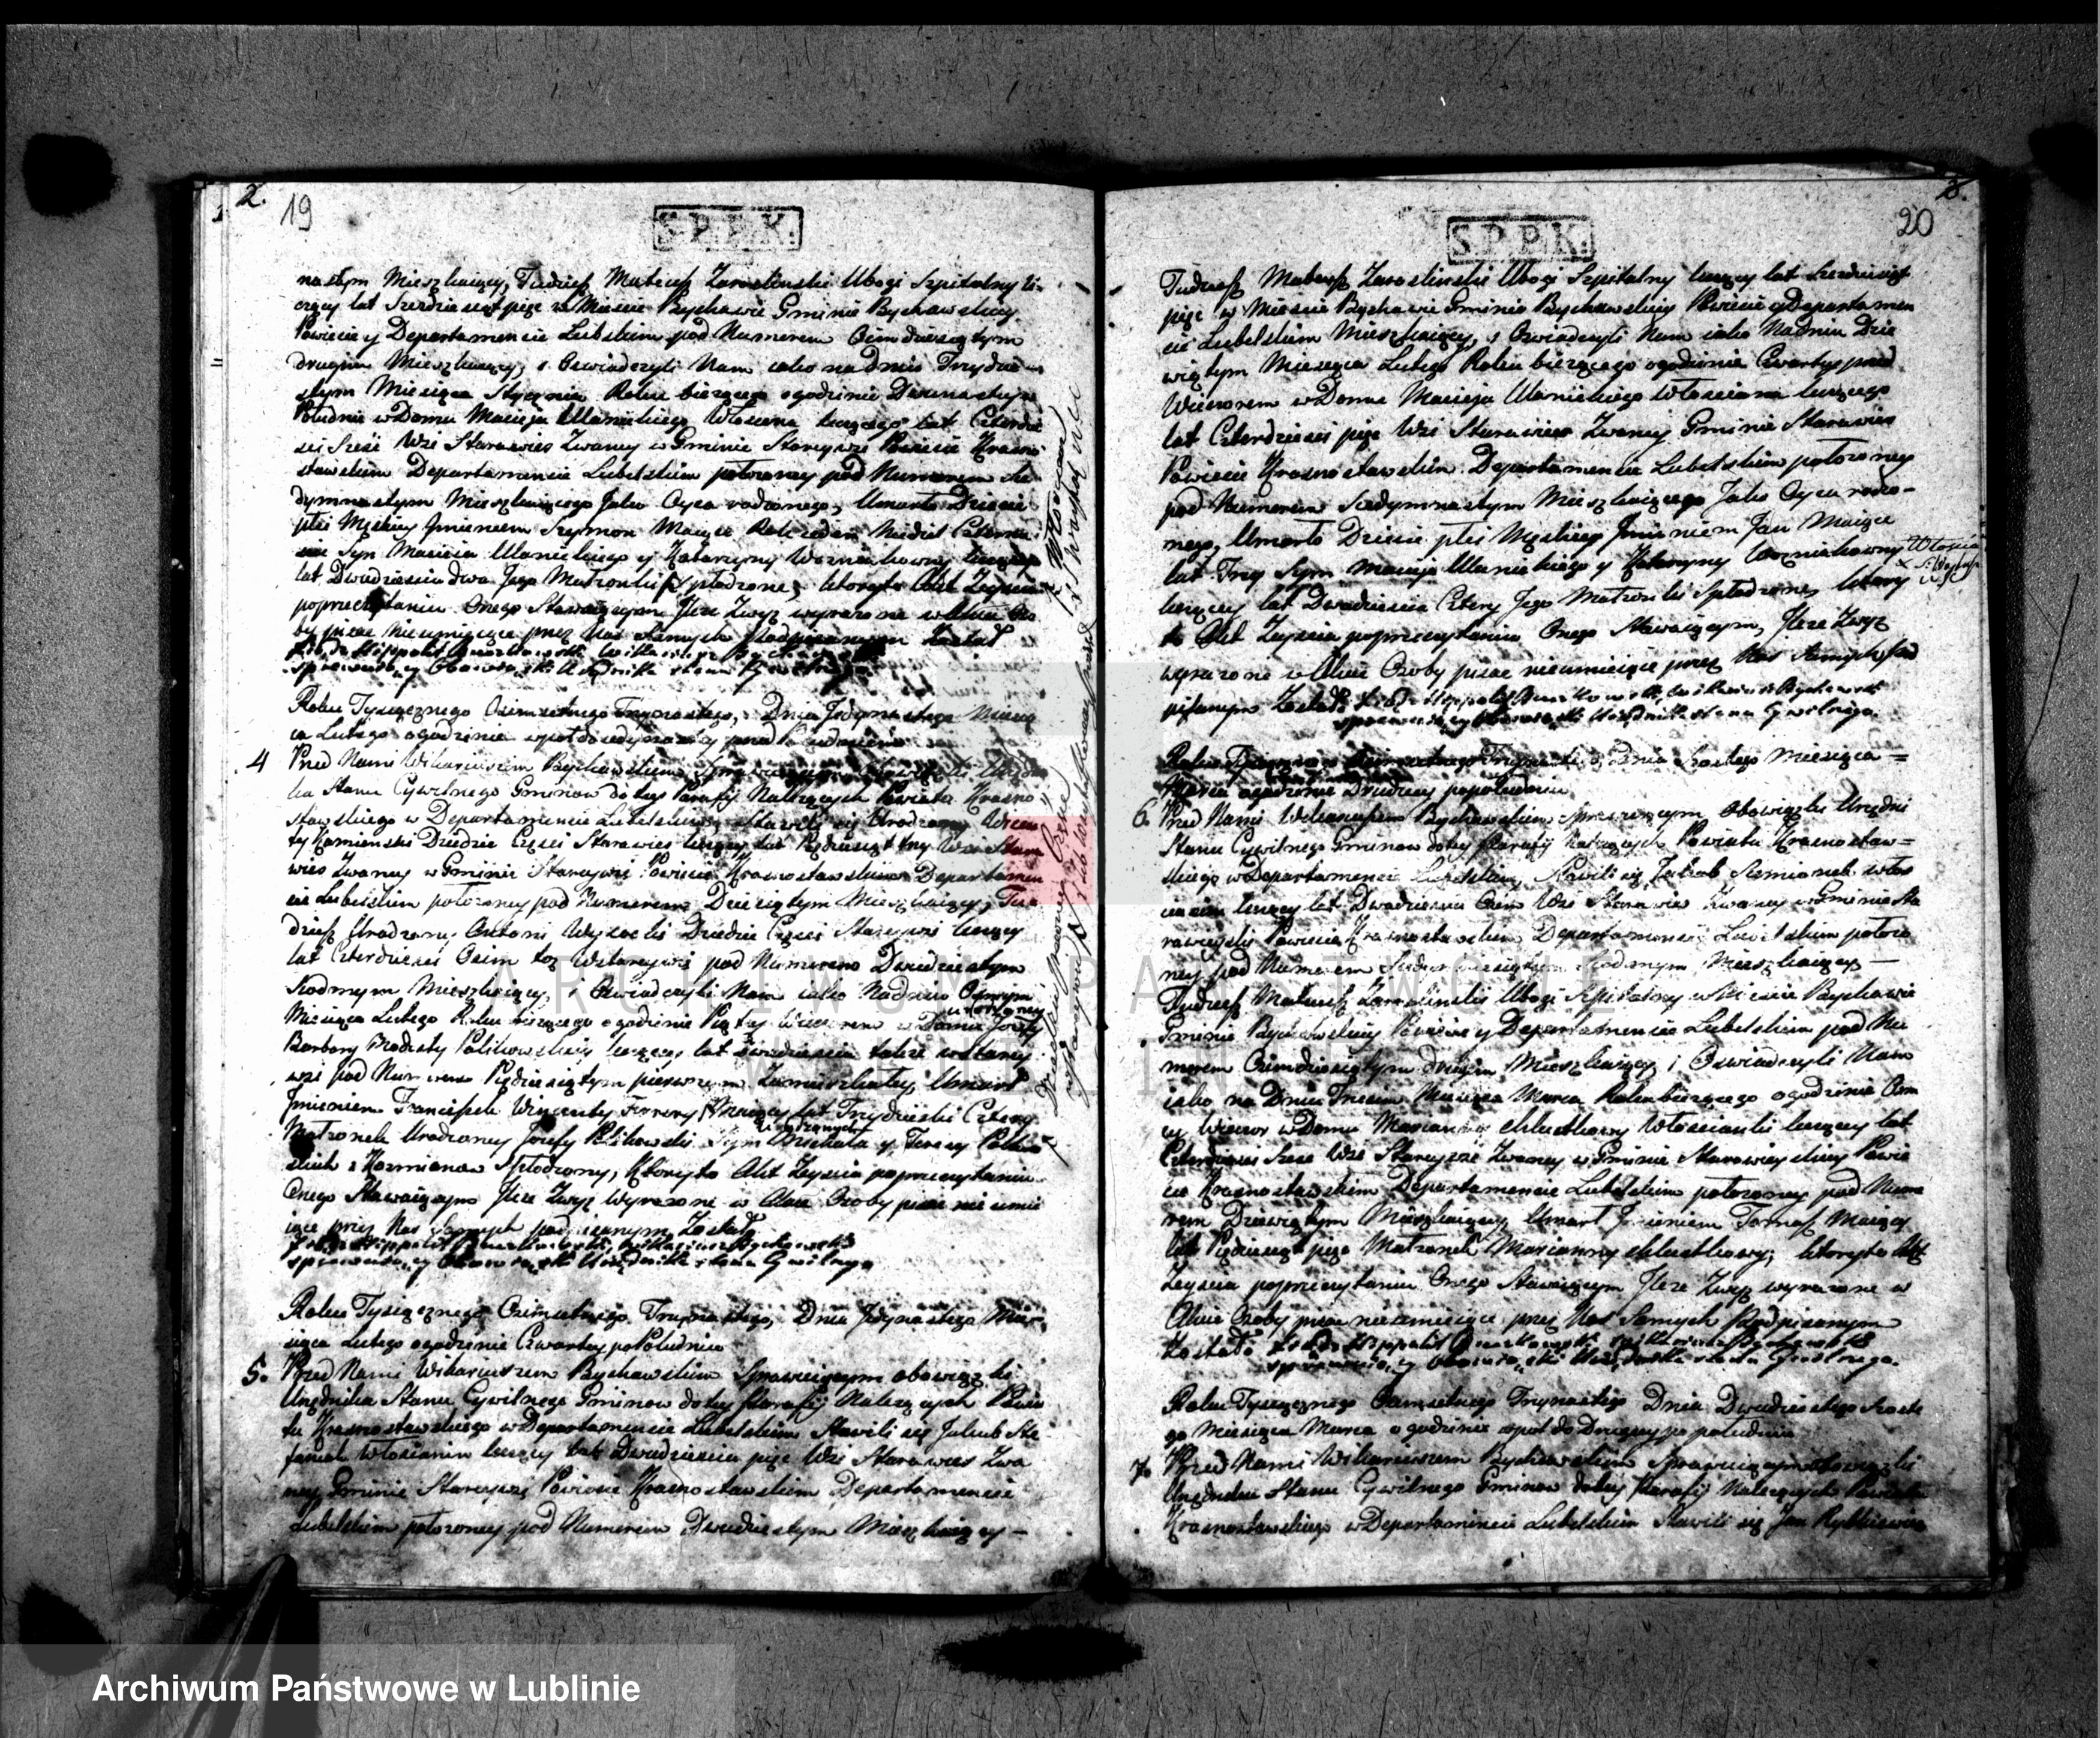 2.
19
S.P.P.K.
nastym Mieszkaiący, Tudzież Mateusz Zaroslinski Ubogi Szpitalny li-
czący lat Szescdziesiąt pięć w Mieście Bychawie Gminie Bychawskiey
Powiecie y Departamencie Lubelskim pod Numerem Osimdziesiątym
drugim Mieszkaiący, i Oswiadczyli Nam iako na dniu Trzydzie-
stym Miesiąca Stycznia Roku bieżącego o godzinie Dwunastey w
Południe w Domu Macieja Ulanickiego Włoscina liczącego lat Czterdzie
sci Sześć Wsi Starawies Zwaney w Gminie Stareywsi Powiecie Krasno
stawskim Departamencie Lubelskim położoney pod Numerem Sie
dymnastym Mieszkaiącego Jako Oyca rodzonego, Umarło Dziecie
płci Męskiey Jmieniem Szymon Maiące Rok ieden Niedziel Czterna
ście Syn Macieia Ulanickiego y Katarzyny Wozniakowny liczącey
lat Dwadziescia dwa Jego Małzonki spłodzone, ktoryto Akt Zeyscia
poprzeczytaniu Onego Stawaiącym Jlze Zwyż wyrażone w Akcie Oso
by pisać nieumieiące przez Nas Samych Podpisanym Został
X. Hippolit Wikariusz Bychawski
sprawuiący Obowiązki Urzędnika stanu Cywilnego
Roku Tysiącznego Osimsetnego Trzynastego, Dnia Jedynastego Miesią
ca Lutego o godzinie wpoł do iedynastey przed Południem
4 Przed Nami Wikariuszem Bychawskim Sprawuiącym Obowiązki Urzędni
ka Stanu Cywilnego Gminow do tey Parafij Należących Powiatu Krasno
stawskiego w Departamencie Lubelskim, Stawili się Urodzony Wincen
ty Kamienski Dziedzic Częsci Starawies liczący lat Pięcdziesiąt trzy Wsi Stara
wies Zwaney w Gminie Stareywsi Powiecie Krasnostawskim Departamen
cie Lubelskim położoney pod Numerem Dziesiątym Mieszkaiący, Tu
dzież Urodzony Antoni Wysocki Dziedzic Częsci Stareywsi liczący
lat Czterdziesci Osim toż w Stareywsi pod Numerem Dwudziestym
Siodmym Mieszkaiący, i Oswiadczyli Nam iako Na dniu Osmym
Miesiąca Lutego Roku bieżącego o godzinie Piątey Wieczorem w Domu Urodzoney Jozefy
Barbary Modesty Polikowskiey liczącey lat dwadziescia także w Starey
wsi pod Numerem Pięcdziesiątym pierwszym Zamieszkałey, Umarł
Jmieniem Franciszek Wincenty Ferrery Maiący lat Trzydziesci Cztery
Małzonek Urodzoney Jozefy Polikowski Syn Urodzonych Michała y Teresy Polikow
skich z Kozmianow Spłodzony, Ktoryto Akt Zeyscia poprzeczytaniu
Onego Stawaiącym Jlze Zwyż Wyrażone w Akcie Osoby pisać nie umie
iące przez Nas Samych podpisanym Został
X. Hippolit Wikariusz Bychawski
sprawuiący Obowiązki Urzędnika stanu Cywilnego
Roku Tysiącznego Osimsetnego Trzynastego, Dnia Jedynastego Mie-
siąca Lutego o godzinie Czwartey po Południu
5. Przed Nami Wikariuszem Bychawskim Sprawuiącym obowiązki
Urzędnika Stanu Cywilnego Gminow do tey Parafij Należących Powia
tu Krasnostawskiego w Departamencie Lubelskim Stawili się Jakub Ste
faniak Włoscianin liczący lat Dwadziescia pięć Wsi Starawies Zwa
ney Gminie Stareywsi Powiecie Krasnostawskim Departamencie
Lubelskim położoney pod Numerem Dwudziestym Mieszkaiący -
3.
20
S.P.P.K.
Tudzież Mateusz Zaroslinski Ubogi Szpitalny liczący lat Szescdziesiąt
pięć w Miescie Bychawie Gminie Bychawskiey Powiecie y Departamen
cie Lubelskim Mieszkaiący, i Oswiadczyli Nam iako Na dniu Dzie
wiątym Miesiąca Lutego Roku bieżącego o godzinie Czwartey przed
Wieczorem w Domu Macieja Ulanickiego Włoscina liczącego
lat Czterdziesci pięć Wsi Starawies Zwaney Gminie Starawies
Powiecie Krasnostawskim Departamencie Lubelskim położoney
pod Numerem Siedymnastym Mieszkaiącego Jako Oyca rodzo-
nego, Umarło Dziecie płci Męskiey Jmieniem Jan Maiące
lat Trzy Syn Macieja Ulanickiego y Katarzyny Wozniakowny
liczącey lat Dwadziescia Cztery Jego Małzonki Spłodzone, ktory
to Akt Zeyscia poprzeczytaniu Onego Stawaiącym, Jlze Zwyż
wyrażone w Akcie Osoby pisać nieumieiące przez Nas Samych Pod
pisanym Został X. Hippolit Wikariusz Bychawski
sprawuiący Obowiązki Urzędnika stanu Cywilnego
Roku Tysiącznego Osimsetnego Trzynastego, Dnia Szostego Miesiąca =
Marca o godzinie Drugiey popołudniu
6. Przed Nami Wikariuszem Bychawskim Sprawuiącym Obowiązki Urzędni
Stanu Cywilnego Gminow do tey Parafij Należących Powiatu Krasnostaw=
skiego w Departamencie Lubelskim, Stawili się Jakub Szmianek włos
cianin liczący lat Dwadziescia Osim Wsi Starawies Zwaney w Gminie Sta
rawieyskiey Powiecie Krasnostawskim Departamencie Lubelskim położo
ney pod Numerem Siodmym Mieszkaiący —
Tudzież Mateusz Zaroslinski Ubogi Szpitalny w Miescie Bychawie
Gminie Bychawskiey Powiecie y Departamencie Lubelskim pod Nu
merem Osimdziesiątym drugim Mieszkaiący, i Oswiadczyli Nam
iako na Dniu Trzecim Miesiąca Marca Roku bieżącego o godzinie Osm
ey Wieczor w Domu Marianny Włoscianki liczącey lat
Czterdziesci Szesc Wsi Stareywsi Zwaney w Gminie Starowieyskiey Powie
cie Krasnostawskim Departamencie Lubelskim położoney pod Nume
rem Dziewiątym Mieszkaiącey, Umarł Jmieniem Tomasz Maiący
lat Pięcdziesiąt pięć Małzonek Marianny, ktoryto Akt
Zeyscia poprzeczytaniu Onego Stawaiącym Jlze Zwyż wyrażone w
Akcie Osoby pisać nieumieiące przez Nas Samych Podpisanym
Został X. Hippolit Wikariusz Bychawski
sprawuiący Obowiązki Urzędnika stanu Cywilnego.
Roku Tysiącznego Osimsetnego Trzynastego Dnia Dwudziestego Szoste
go Miesiąca Marca o godzinie wpoł do Drugiey po południu
7. Przed Nami Wikariuszem Bychawskim Sprawuiącym Obowiązki
Urzędnika Stanu Cywilnego Gminow do tey Parafij Należących Powiatu
Krasnostawskiego w Departamencie Lubelskim Stawili się Jan
ARCHIWUM PAŃSTWOWE
W LUBLINIE
Archiwum Państwowe w Lublinie